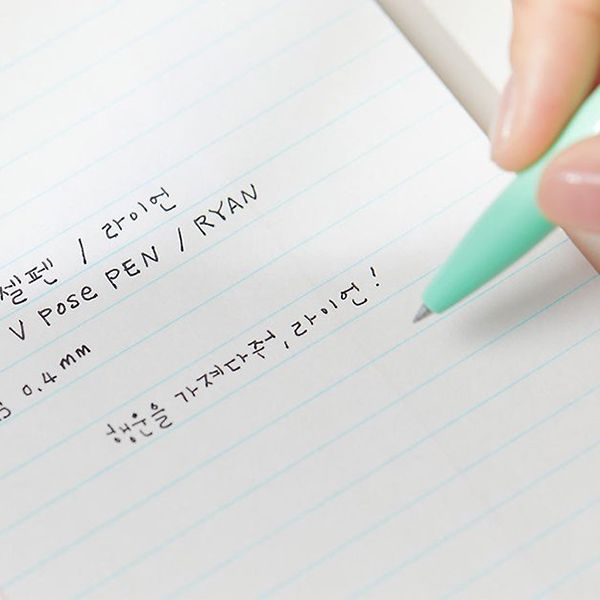 셀펜 / 라이언
V Pose PEN / RYAN
0.4 mm
행운을 가져다줘, 라이언!